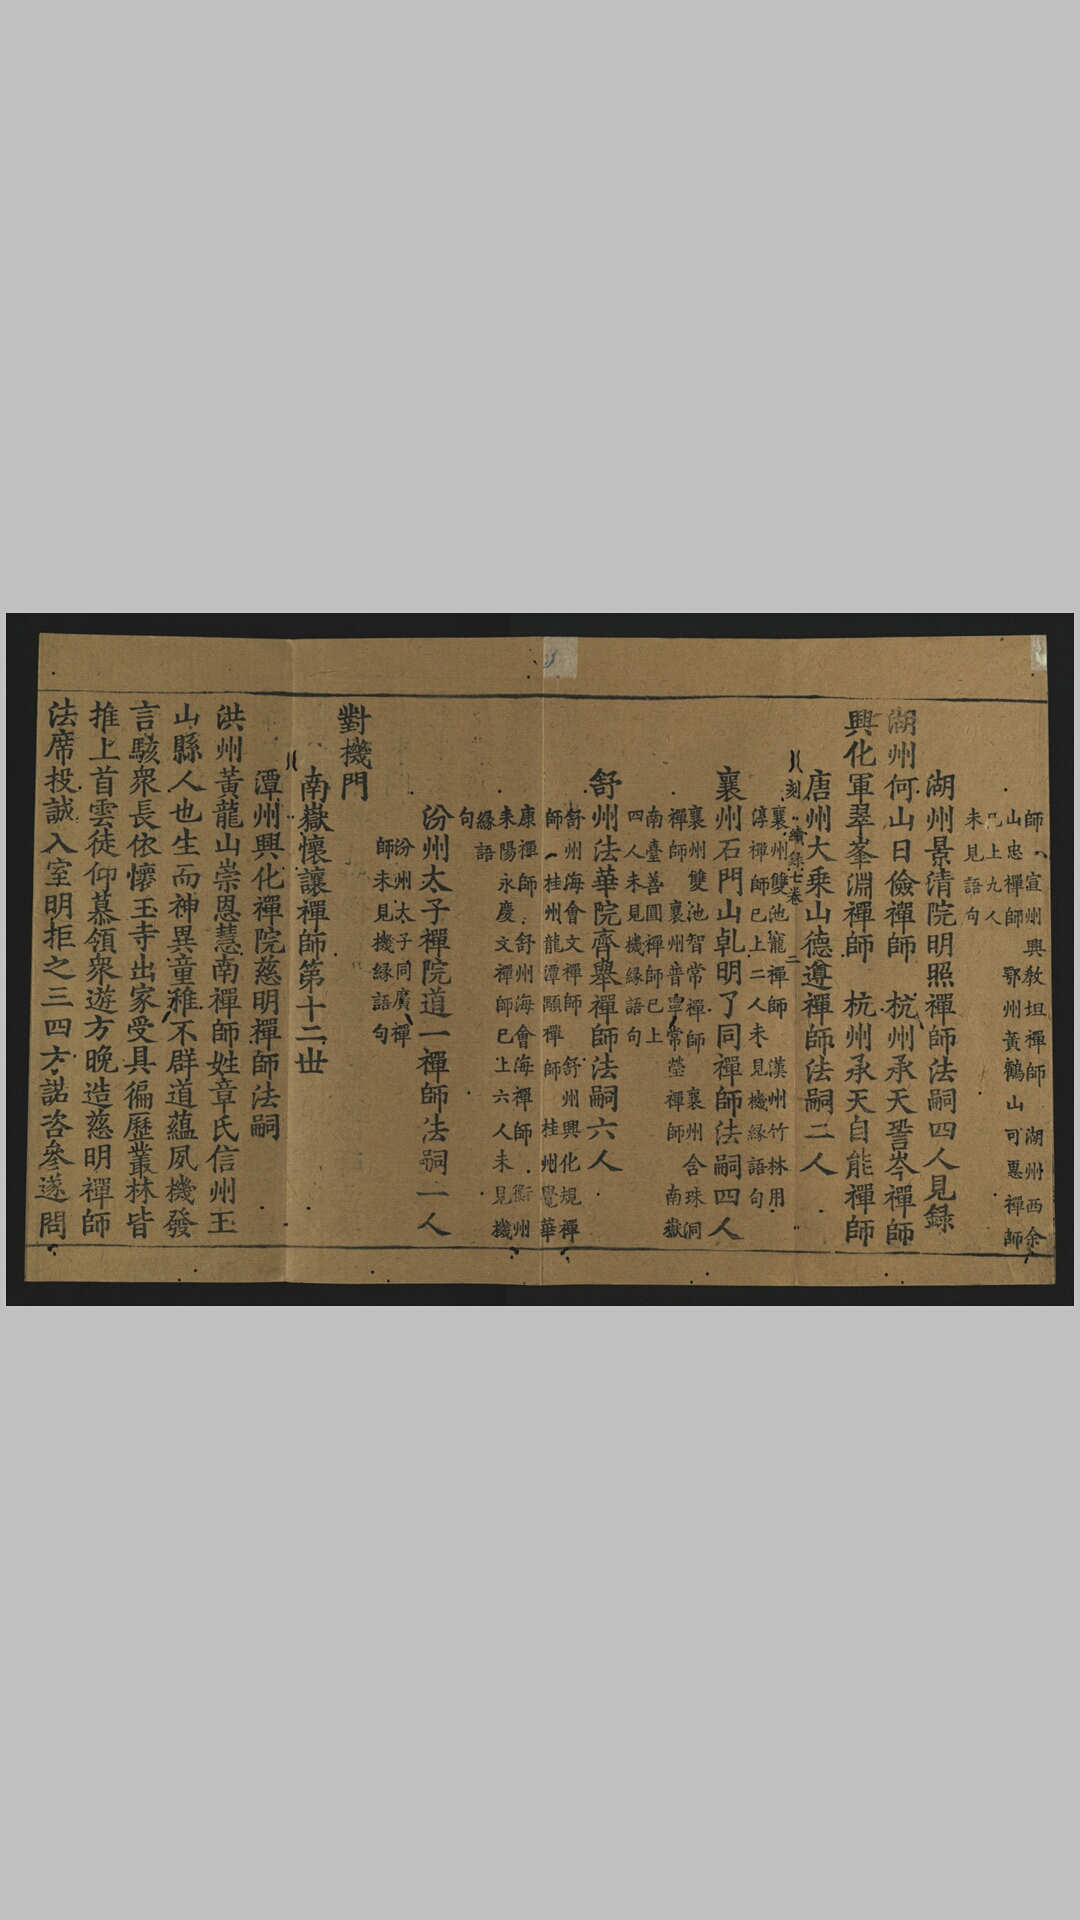 師宣州興教坦禪師 湖州西余
山忠禪師 鄂州黃鶴山可惠禪師
已上九人
未見語句
湖州景清院明照禪師法嗣四人見録
湖州何山日儉禪師 杭州承天岑禪師
興化軍翠峯淵禪師 杭州承天自能禪師
唐州大乗山德遵禪師法嗣二人
刻 續録七卷 二
襄州雙池禪師 漢州竹林用
淳禪師已上二人未見機緣語句
襄州石門山乹明了同禪師法嗣四人
襄州雙池智常禪師 襄州含珠洞
禪師 襄州普寧常瑩禪師 南嶽
南臺善圓禪師已上
四人未見機緣語句
舒州法華院齊舉禪師法嗣六人
舒州海會文禪師 舒州興化規禪
師 桂州龍潭顯禪師 桂州覺華
康禪師 舒州海會海禪師 衡州
耒陽永慶文禪師已上六人未見機
緣語
句
汾州太子禪院道一禪師法嗣一人
汾州太子同廣禪
師未見機緣語句
對機門
南嶽懷讓禪師第十二世
潭州興化禪院慈明禪師法嗣
洪州黃龍山崇恩慧南禪師姓章氏信州玉
山縣人也生而神異童稚不群道蘊夙機發
言駭衆長依懷玉寺出家受具徧歷叢林皆
推上首雲徒仰慕領衆遊方晚造慈明禪師
法席投誠入室明拒之三四方諾咨參遂問